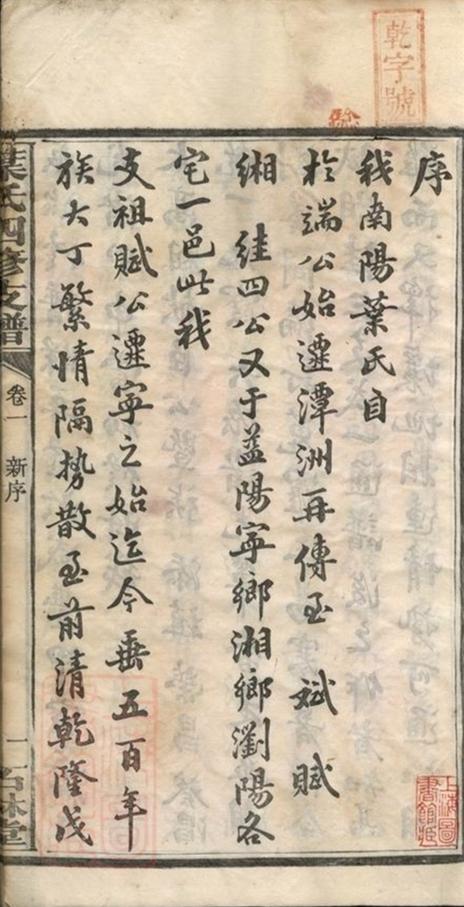 乾字號
序
我南陽葉氏自
於端公始遷潭洲再傳至 斌 賦
緗 絓四公又于益陽寧鄉湘鄉瀏陽各
宅一邑此我
支祖賦公遷寧之始迄今垂五百年
族大丁繁情隔勢散至前清乾隆戊
葉氏四修支譜
卷一 新序
一
石林堂
上海圖
書館藏